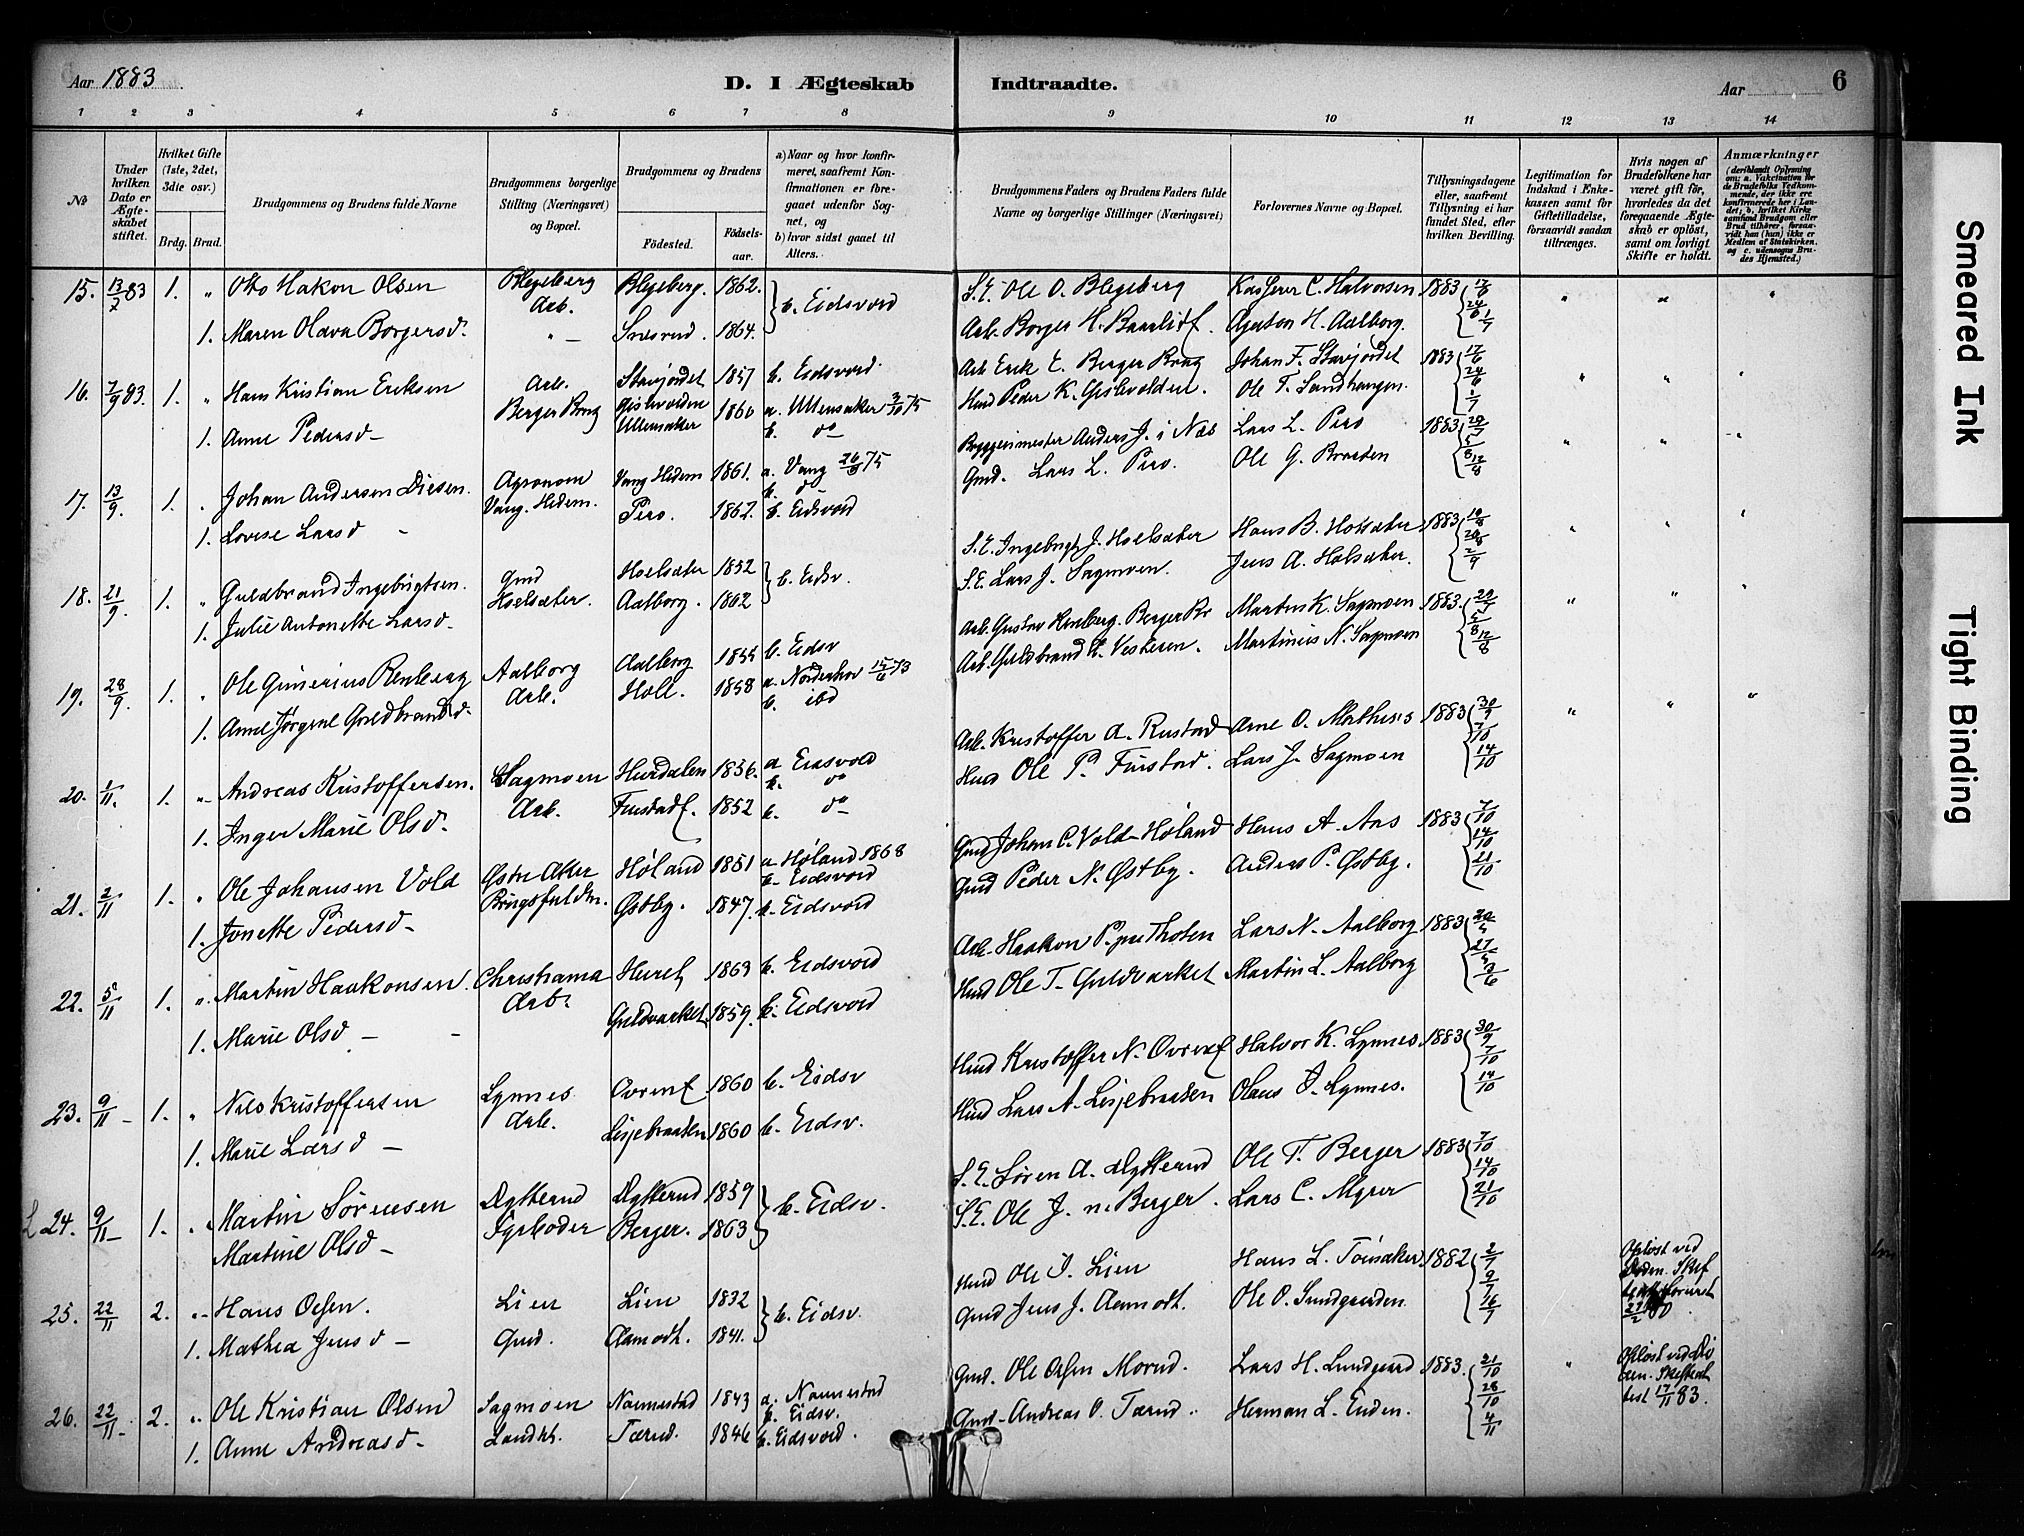 Aar 1883
D. I Ægteskab Indtraadte.
Aar 6
1 2 3 4 5 6 7 8 9 10 11 12 13 14
No
Under hvilken Dato er Ægteskabet stiftet.
Hvilket Gifte (1ste, 2det, 3die osv.)
Brdg. Brud.
Brudgommens og Brudens fulde Navne
Brudgommens borgerlige Stilling (Næringsvei) og Bopæl.
Brudgommens og Brudens
Födested. Födselsaar.
a) Naar og hvor konfirmeret, saafremt Konfirmationen er foregaaet udenfor Sognet, og
b) hvor sidst gaaet til Alters.
Brudgommens Faders og Brudens Faders fulde Navne og borgerlige Stillinger (Næringsvei)
Forlovernes Navne og Bopæl.
Tillysningsdagene eller, saafremt Tillysning ei har fundet Sted, efter hvilken Bevilling.
Legitimation for Indskud i Enkekassen samt for Giftetilladelse, forsaavidt saadan tiltrænges.
Hvis nogen af Brudefolkene har været gift för, hvorledes da det foregaaende Ægteskab er oplöst, samt om lovligt Skifte er holdt.
Anmærkninger (deriblandt Oplysning om: a. Vakcination for de Brudefolks Vedkommende, der ikke ere konfirmerede her i Landet; b. hvilket Kirkesamfund Brudgom eller Brud tilhører, forsaavidt han (hun) ikke er Medlem af Statskirken, og c. udensogns Brudes Hjemsted.)
15. 13/7 83 1. " Otto Hakon Olsen Blegeberg Arb. Blegeberg. 1862. b. Eidsvord S.E. Ole O. Blegeberg Kasserer C. Halvorsen 1883 17/6 24/6 1/7 " " "
1. Maren Olava Borgersd. " - 1864. Arb. Borger H. Agaton H. Aalborg.
16. 7/9 83. 1. " Hans Kristian Eriksen Arb. Berger Brug Starjordet 1857 b. Eidsvord. Arb Erik E. Berger Brug Johan F. Starjordet 1883 17/6 24/6 1/7 " " "
1. Anne Pedersd - Gislevolden Ullensaker 1860 a. Ullensaker 3/10 75 b. do Husd Peder K. Gislevolden. Ole T. Sandhaugen.
17. 13/9. 1. " Johan Andersen Diesen. Agronom Vang. Hedem. Vang Hedem 1861. a. Vang 75 Byggemester Anders J. i Næs Lars L. Piro 1883 29/7 5/8 12/8 " " "
1. Lovise Larsd - Piro. 1862. b. Eidsvord Gmd. Lars L. Piro. Ole G. Braaden
18. 21/9. 1. " Guldbrand Ingebrigtsen. Gmd Hoelsæter. Hoelsæter 1852 b. Eidsv. S.E. Ingebrigt J. Hoelsæter Hans B. Holsæter 1883 " " "
1. Julie Antonette Larsd - Aalborg. 1862 S.E. Lars J. Sagmoen. Jens A. Holsæter.
19. 28/9. 1. " Ole Gunerius Renberg Aalborg Arb. Aalborg b. Eidsv Arb. Gustav Berger Br Martin K. Sagmoen 1883. 29/7 5/8 12/8 " " "
1. Anne Jørgene Guldbrandsd. Hole. 1858 a. Norderhov 15/6 73 b. ibd Arb. Guldbrand Vesteren. Martinius N. Sagmoen
20. 1/11. 1. " Andreas Kristoffersen. Sagmoen Arb. Hurdalen 1856. a Eidsvold b. do Arb. Kristoffer A. Rustad Arne O. Mathises 1883 30/9 7/10 14/10 " " "
1. Inger Marie Olsd. Finstad 1852 b. do Husd Ole P. Finstad. Lars J. Sagmoen
21. 2/11 1. " Ole Johansen Vold Høland 1851 a. Høland 1868 b. Eidsvord Gmd Johan C. Vold Høland Hans A. Aas 1883 7/10 14/10 21/10
1. Jonette Pedersd - Østby. 1847. b. Eidsvord Gmd Peder N. Østby. Anders P. Østby.
22. 5/11 1. " Martin Haakonsen. Christiania Arb. 1863 b. Eidsvord Arb. Haakon P. Lars N. Aalborg 1883 20/5 27/5 3/6
1. Marie Olsd - Guldvarket. 1859. b. Eidsvord Husd Ole T. Guldvarket Martin L. Aalborg
23. 9/11 - 1. " Nils Kristoffersen Lynnes Arb. 1860 b. Eidsv Husd Kristoffer N. Halvor K. Lynnes 1883 30/9 7/10 14/10
1. Marie Larsd - Lisjebraaten 1860 b. Eidsv. Husd Lars A. Lisjebraaten Olaus O. Lynnes.
24. 9/11 - 1. " Martin Sørensen Dytterud Fyrbøder Dytterud 1859 b. Eidsv. S.E. Søren A. Dytterud Ole T. Berger 1883 7/10 14/10 21/10
Martine Olsd - Berger. 1863 S.E. Ole J. n. Berger. Lars C. Myrer
25. 22/11 2. " Hans Olsen. Lien Gmd. Lien 1832 b. Eidsv. Husd Ole J. Lien Hans L. Toisaker 1882 2/7 9/7 16/7 Opløst ved Døden.
1. Mathea Jensd - Aamodt. 1841. Gmd Jens J. Aamodt. Ole O. Sundgaarden
26. 22/11. 2. " Ole Kristian Olsen Sagmoen Landh. Nannestad 1843 a. Nannestad b. Eidsv. Gmd. Ole Olsen Morud. Lars H. Lundgaard 1883. 21/10 28/10 4/11 " Opløst ved Døden. Skifteattest 17/11 83.
1. Anne Andreasd - Tærud. 1846 b. Eidsvord. Gmd. Andreas O. Tærud. Herman L. Enden.
Smeared Ink
Tight Binding